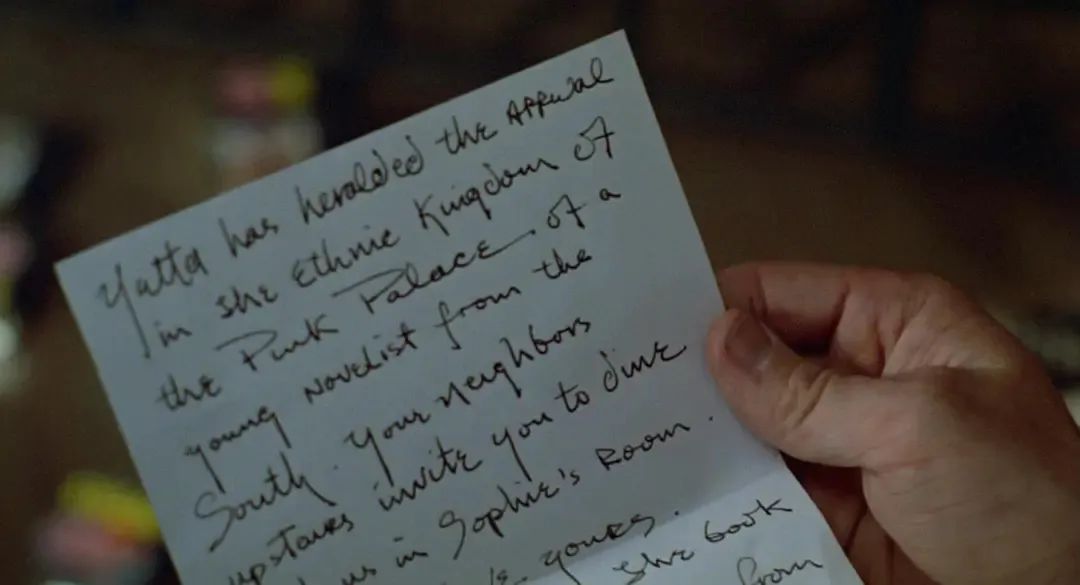 Yatta has heralded the ARRIVAL
in the Ethnic Kingdom of
the Pink Palace of a
young Novelist from the
South. Your neighbors
upstairs invite you to dine
us in Sophie's Room.
is yours.
the book
from